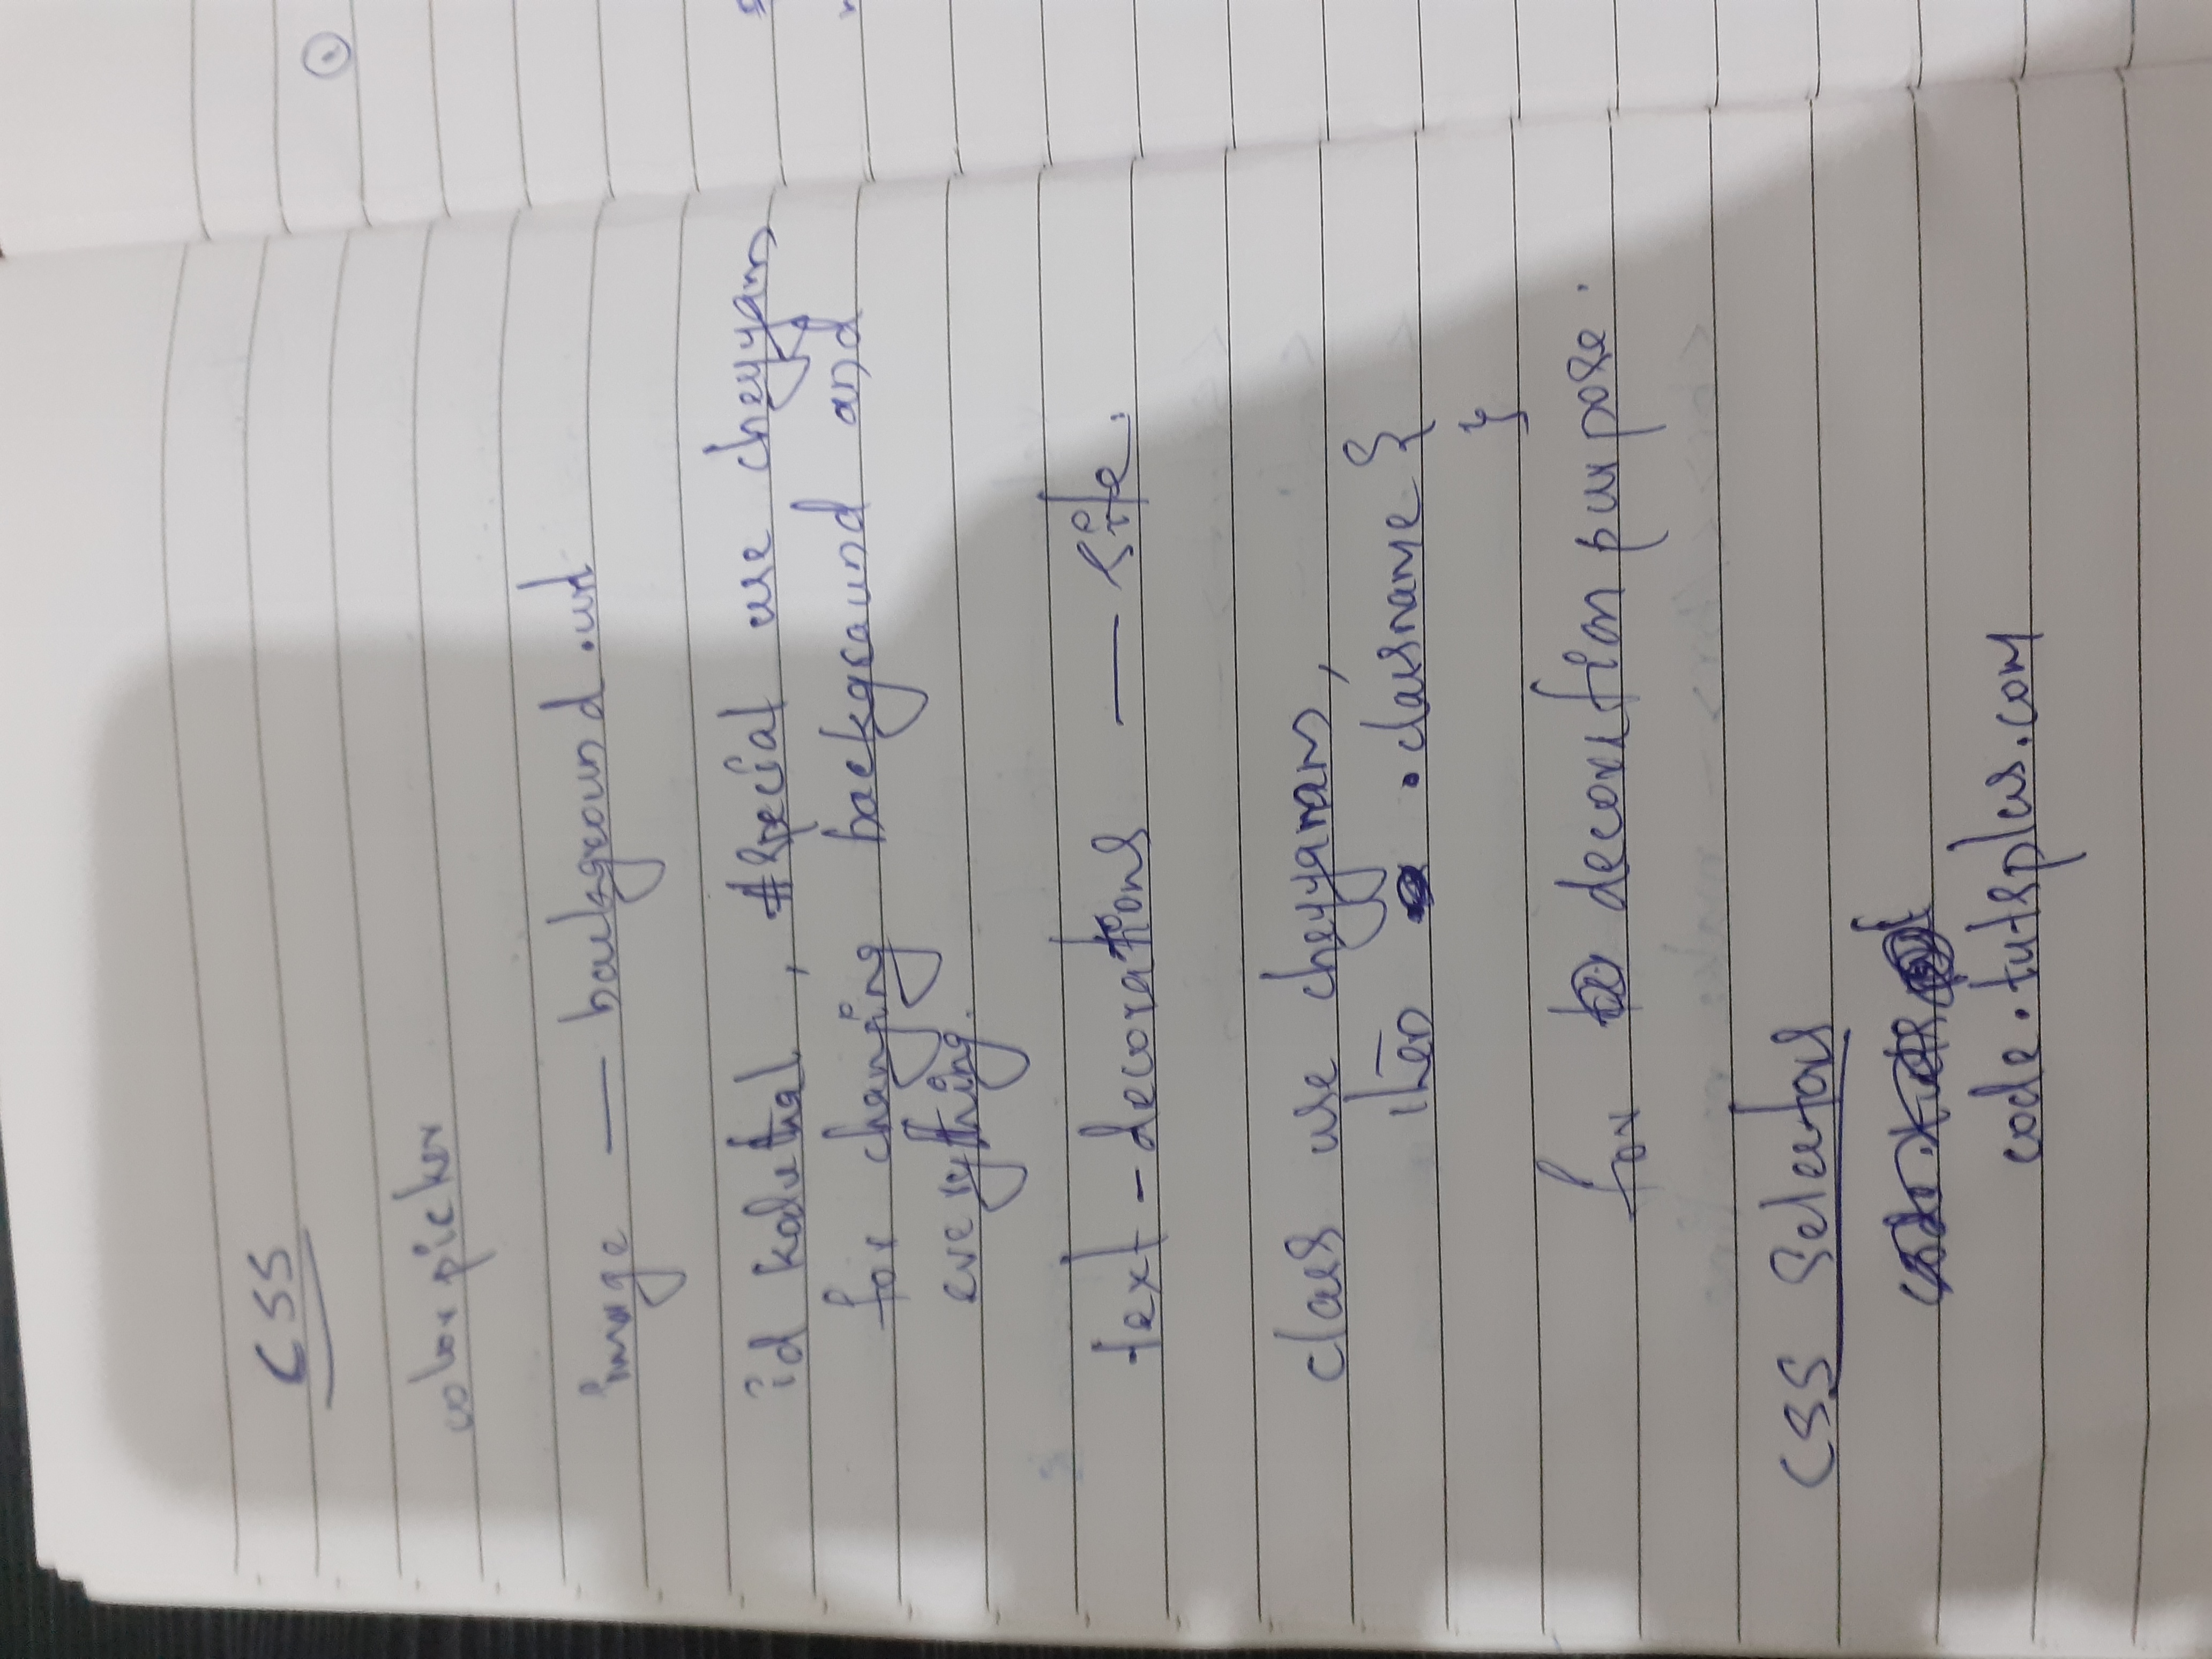 CSS
color picker
image — background.url
id koduthal, #special use cheyyam
for changing background and
everything.
text-decorations — site.
class use cheyyam,
then .classname {
}
for decoration purpose.
CSS Selectors
code.tutsplus.com